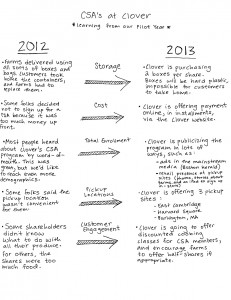 CSA's at Clover
*learning from our Pilot Year*
2012
2013
•Farms delivered using
all sorts of boxes and
bags. Customers took
home the containers,
and farms had to
replace them.
Storage
•Clover is purchasing
2 boxes per share.
Boxes will be hard plastic,
impossible for customers
to take home.
•Some folks decided
not to sign up for a
CSA because it was
too much money up
front.
Cost
•Clover is offering payment
online, in installments,
via the Clover website.
•Most people heard
about Clover's CSA
program by word-of-
mouth. This was
great, but we'd like
to reach even more
demographics.
Total Enrollment
•Clover is publicizing the
program in lots of
ways, such as:
- ads in the mainstream
media (Boston Herald)
•Some folks said the
pickup location
wasn't convenient
for them.
Pickup
Locations
•Clover is offering 3 pickup
sites:
- East Cambridge
- Harvard Square
- Burlington, MA
•Some shareholders
didn't know
what to do with
all their produce.
For others, the
shares were too
much food.
Customer
Engagement
•Clover is going to offer
discounted cooking
classes for CSA members,
and encourage farms
to offer half shares if
appropriate.